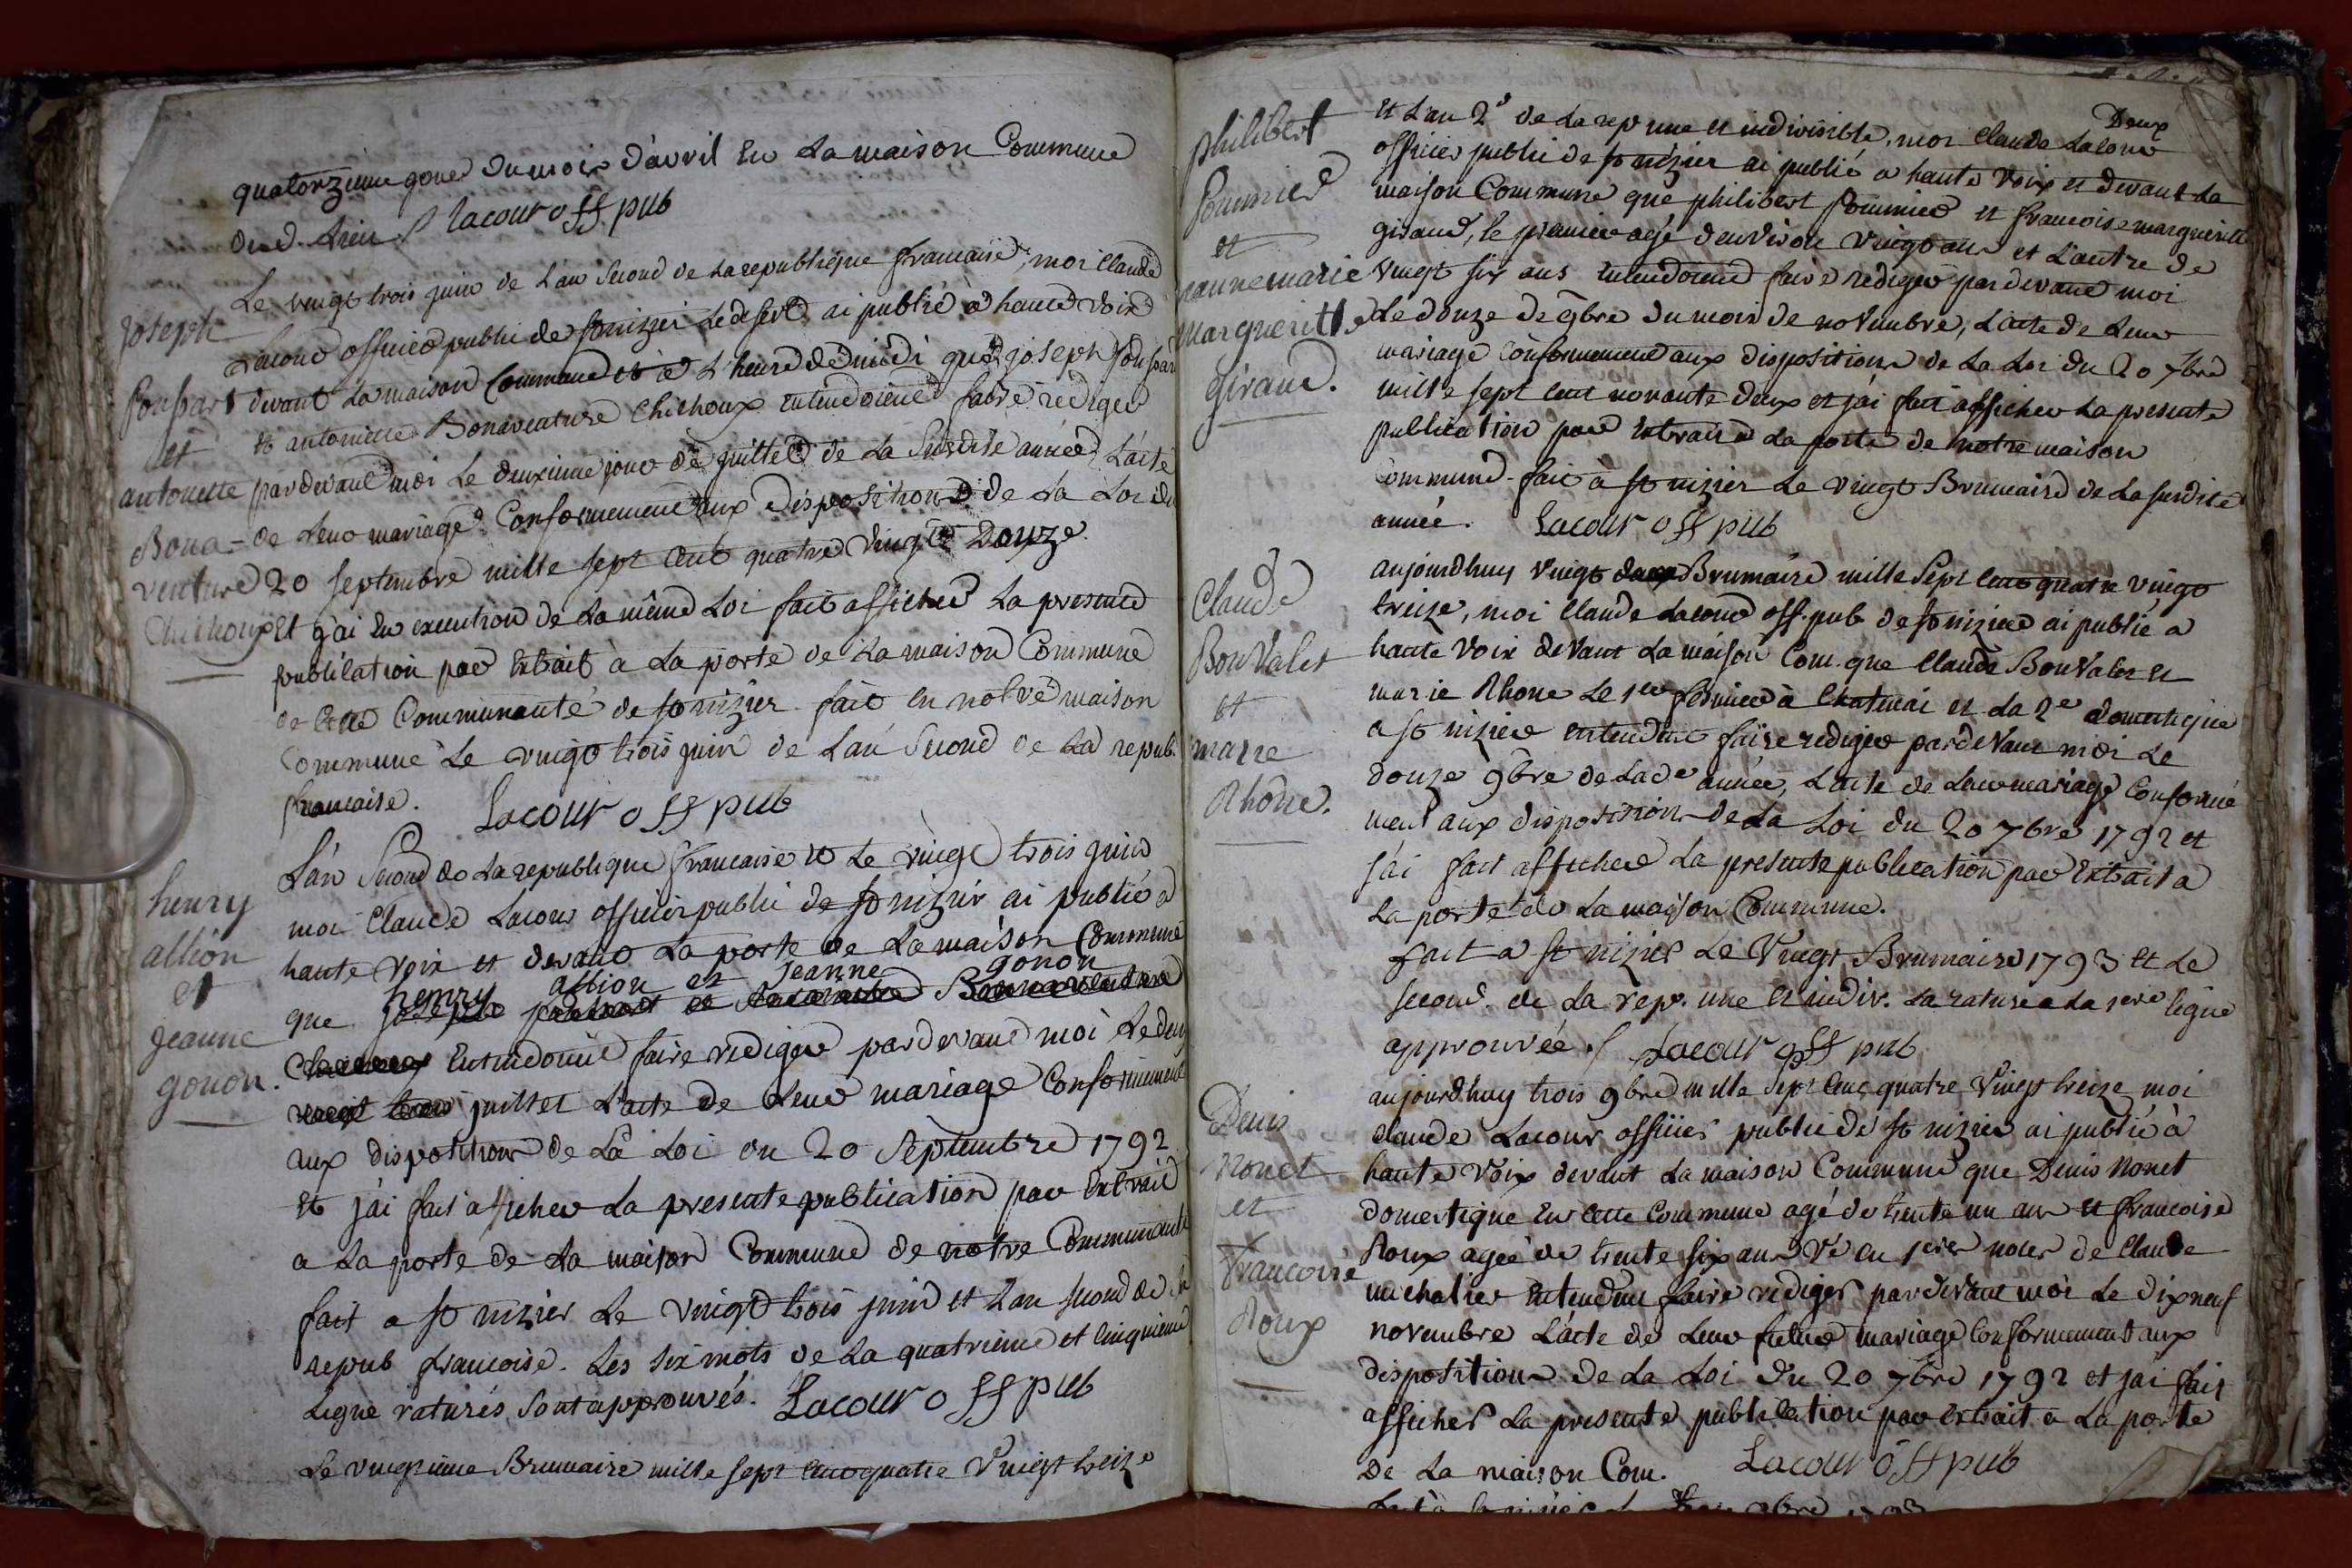 quatorzieme jour du mois d'avril en la maison Commune
dud. lieu / lacour off pub
Joseph
ponsard
et
antoinette
Bona-
venture
Chichoux
Le vingt trois juin de l'an second de la republique francaise, moi Claude
Lacour officier public de st nizier le desert ai publié a haute voix
devant la maison Commune et a l'heure de midi que joseph ponsard
et antoinette Bonaventure Chichoux entendoient faire rediger
pardevant moi Le deuxieme jour de juillet de la susdite année L'acte
de leur mariage Conformement aux dispositions de la Loi du
20 septembre mille sept cent quatre vingt Douze.
Et j'ai en execution de la même Loi fait afficher La presente
publication par extrait à la porte de la maison Commune
de cette Communauté de st nizier fait en notre maison
Commune Le vingt trois juin de l'an second de la repub.
francaise. Lacour off pub
henry
allion
et
jeanne
gonon.
L'an second de la republique francaise et le vingt trois juin
moi Claude Lacour officier public de st nizier ai publié a
haute voix et devant La porte de La maison Commune
henry allion et jeanne gonon
que joseph ponsard et antoinette Bonaventure
Chichoux entendoient faire rediger pardevant moi Le deux
vingt trois juillet L'acte de leur mariage Conformement
aux dispositions de La Loi du 20 septembre 1792
et j'ai fait afficher La presente publication par extrait
a La porte de La maison Commune de notre Communauté
fait a st nizier Le vingt trois juin et l'an second de la
repub francoise. Les six mots de La quatrieme et cinquieme
Ligne raturés sont approuvés. Lacour off pub
Le vingtieme Brumaire mille sept cent quatre vingt treize
philibert
pommier
et
jeanne marie
margueritte
giraud.
Deux
et L'an 2e de la rep une et indivisible, moi Claude Lacour
officier public de st nizier ai publié a haute voix et devant La
maison Commune que philibert pommier et francoise margueritte
giraud, le premier agé d'environ vingt ans et L'autre de
vingt six ans entendoient faire rediger pardevant moi
Le douze de 9bre du mois de novembre, L'acte de leur
mariage conformement aux dispositions de La Loi du 20 7bre
mille sept cent nonante deux et j'ai fait afficher La presente
publication par extrait a La porte de notre maison
Commune fait à st nizier Le vingt Brumaire de La susdite
année. Lacour off pub
Claude
Bon Valet
et
marie
Rhone.
aujourdhuy vingt deux Brumaire mille sept cent quatre vingt
treize, moi Claude Lacour off. pub de st nizier ai publié a
haute voix devant La maison Com. que Claude Bon Valet et
marie Rhone Le 1er fermier à Chatenai et La 2e domestique
a st nizier entendent faire rediger pardevant moi Le
douze 9bre de lade année, L'acte de leur mariage Conformé
ment aux dispositions de La Loi du 20 7bre 1792 et
j'ai fait afficher La presente publication par extrait a
La porte de La maison Commune.
fait a st nizier Le Vingt Brumaire 1793 et Le
second de La rep. une et indiv. La rature a La 1ere ligne
approuvée / Lacour off pub
Denis
Nonet
et
francoise
Roux
aujourdhuy trois 9bre mille sept cent quatre vingt treize moi
Claude Lacour officier public de st nizier ai publié à
haute voix devant La maison Commune que Denis Nonet
domestique en cette Commune agé de trente un an et francoise
Roux agée de trente six ans ve en 1eres noces de Claude
michalier entendent faire rediger pardevant moi Le dix neuf
novembre L'acte de leur futur mariage Conformement aux
dispositions de La Loi du 20 7bre 1792 et j'ai fait
afficher La presente publication par extrait a La porte
De La maison Com. Lacour off pub